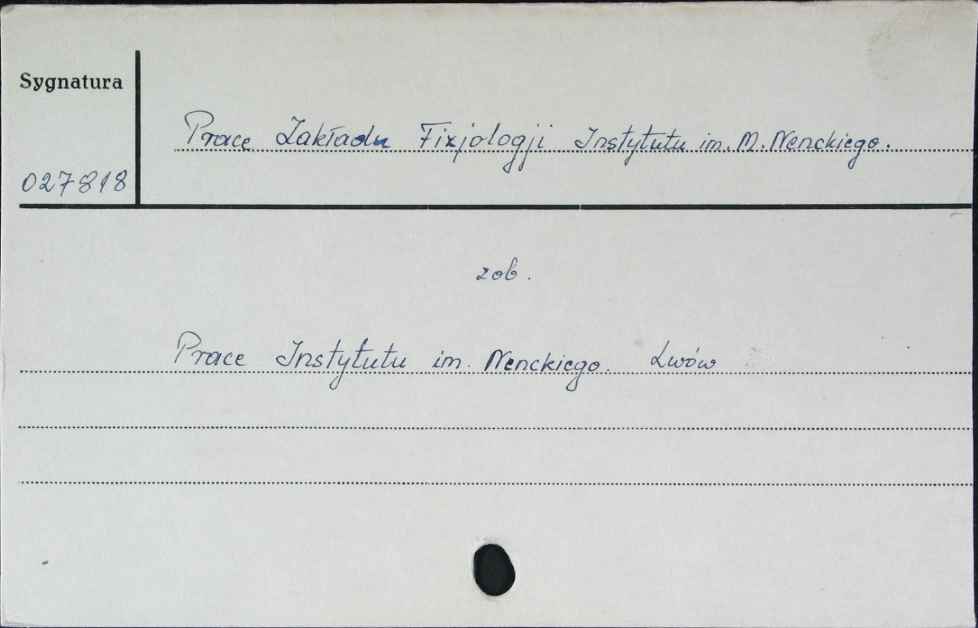 Sygnatura
Prace Zakładu Fizjologji Instytutu im. M. Nenckiego.
027818
zob.
Prace Instytutu im. Nenckiego. Lwów